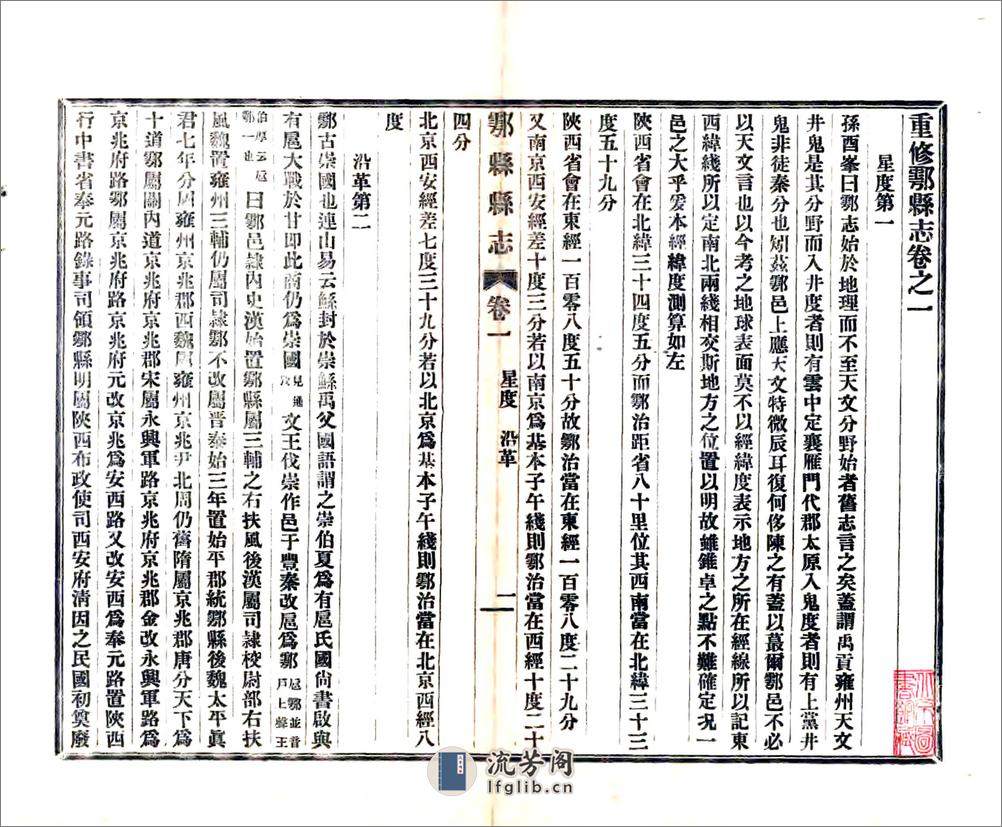 重修鄠縣志卷之一
星度第一
孫酉峯曰鄠志始於地理而不至天文分野始者舊志言之矣蓋謂禹貢雍州天文
井鬼是其分野而入井度者則有雲中定襄雁門代郡太原入鬼度者則有上黨井
鬼非徒秦分也矧茲鄠邑上應天文特微辰耳復何侈陳之有蓋以蕞爾鄠邑不必
以天文言也以今考之地球表面莫不以經緯度表示地方之所在經線所以記東
西緯綫所以定南北兩綫相交斯地方之位置以明故雖錐卓之點不難確定况一
邑之大乎爰本經緯度測算如左
陝西省會在北緯三十四度五分而鄠治距省八十里位其西南當在北緯三十三
度五十九分
陝西省會在東經一百零八度五十分故鄠治當在東經一百零八度二十九分
又南京西安經差十度三分若以南京爲基本子午綫則鄠治當在西經十度二十
四分
鄠縣縣志 卷一 星度 沿革 一
北京西安經差七度三十九分若以北京爲基本子午綫則鄠治當在北京西經八
度
沿革第二
鄠古崇國也連山易云鯀封於崇鯀禹父國語謂之崇伯夏爲有扈氏國尚書啟與
有扈大戰於甘即此商仍爲崇國見通穴文王伐崇作邑于豐秦改扈爲鄠扈鄠並音戶上聲王
治厚云扈鄠一也曰鄠邑隸內史漢始置鄠縣屬三輔之右扶風後漢屬司隷校尉部右扶
風魏置雍州三輔仍屬司隷鄠不改屬晋泰始三年置始平郡統鄠縣後魏太平眞
君七年分屬雍州京兆郡西魏屬雍州京兆尹北周仍舊隋屬京兆郡唐分天下爲
十道鄠屬關內道京兆府京兆郡宋屬永興軍路京兆府京兆郡金改永興軍路爲
京兆府路鄠屬京兆府路京兆府元改京兆爲安西路又改安西爲奉元路置陝西
行中書省奉元路錄事司領鄠縣明屬陝西布政使司西安府清因之民國初奠廢
流芳阁
lfglib.cn